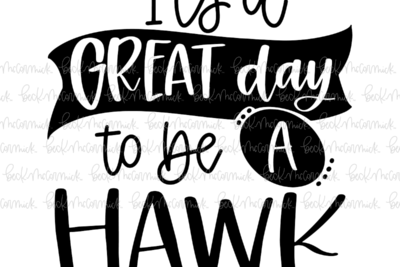 It's a
GREAT day
to be A
HAWK